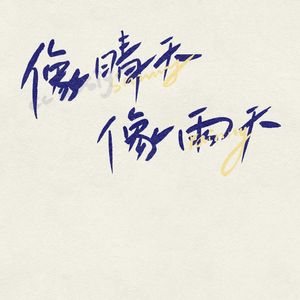 像晴天
像雨天